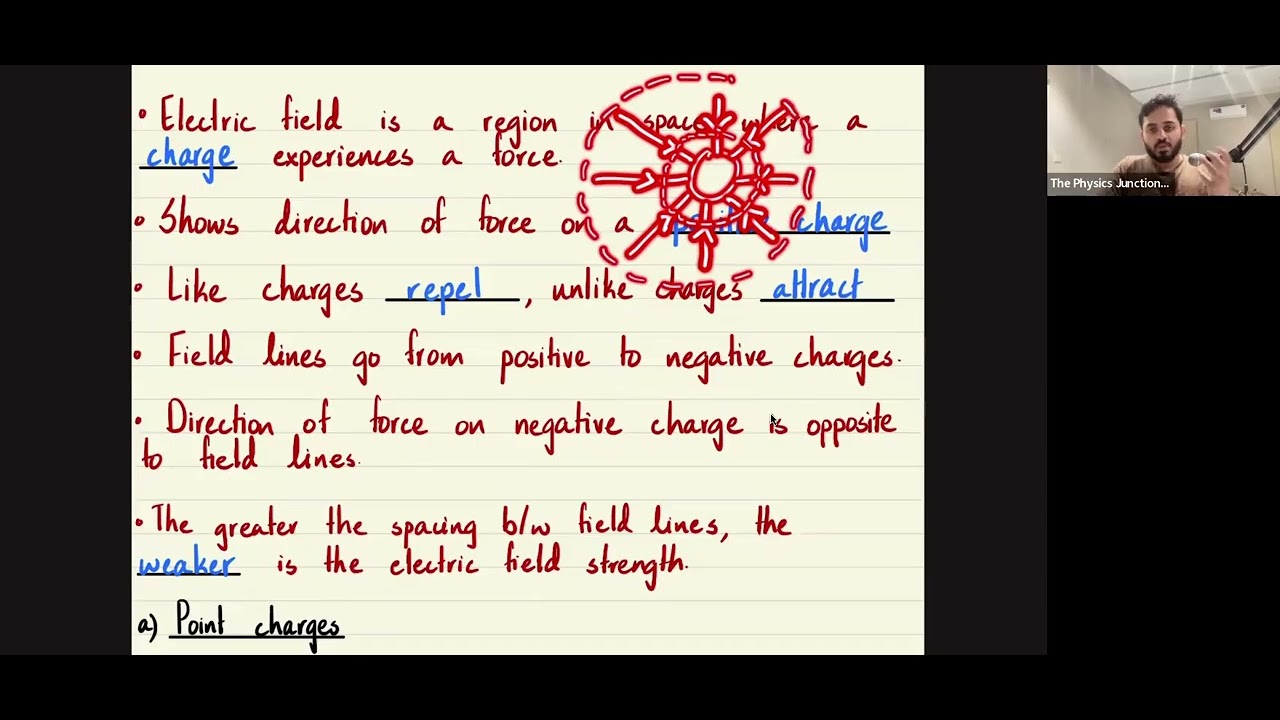 • Electric field is a region in space where a
charge experiences a force.
• Shows direction of force on a positive charge
• Like charges repel, unlike charges attract
• Field lines go from positive to negative charges.
• Direction of force on negative charge is opposite
to field lines.
• The greater the spacing b/w field lines, the
weaker is the electric field strength.
a) Point charges
The Physics Junction...